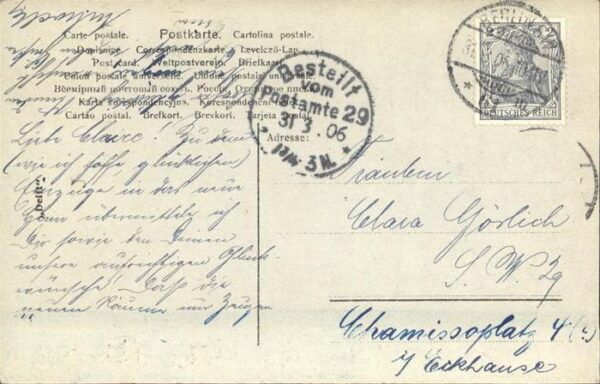 Carte postale. Postkarte. Cartolina postale.
Dopisnice. Correspondenzkarte. Levelező-Lap.
Post card. Weltpostverein. Briefkaart.
Union postale universelle. Unione postale universale.
Всемірный почтовый союзъ. Россія. Открытое письмо.
Karta korespondencyjna. Korespondenční lístek.
Cartão postal. Brefkort. Brevkort. Tarjeta Postal.
Adresse:
"Delft".
Bestellt
vom
Postamte 29
31 3. 06
3 N.
BERLIN SW
DEUTSCHES REICH
Liebe Claere! Zu dem
(wie ich hoffe, glücklichen)
Einzuge in das neue
Heim übermittele ich
Dir sowie den Deinen
unsere aufrichtigen Glück-
wünsche. Daß die
neuen Räume nur Zeugen
Fräulein
Clara Görlich
S.W. 29
Chamissoplatz 4
i/ Eckhause